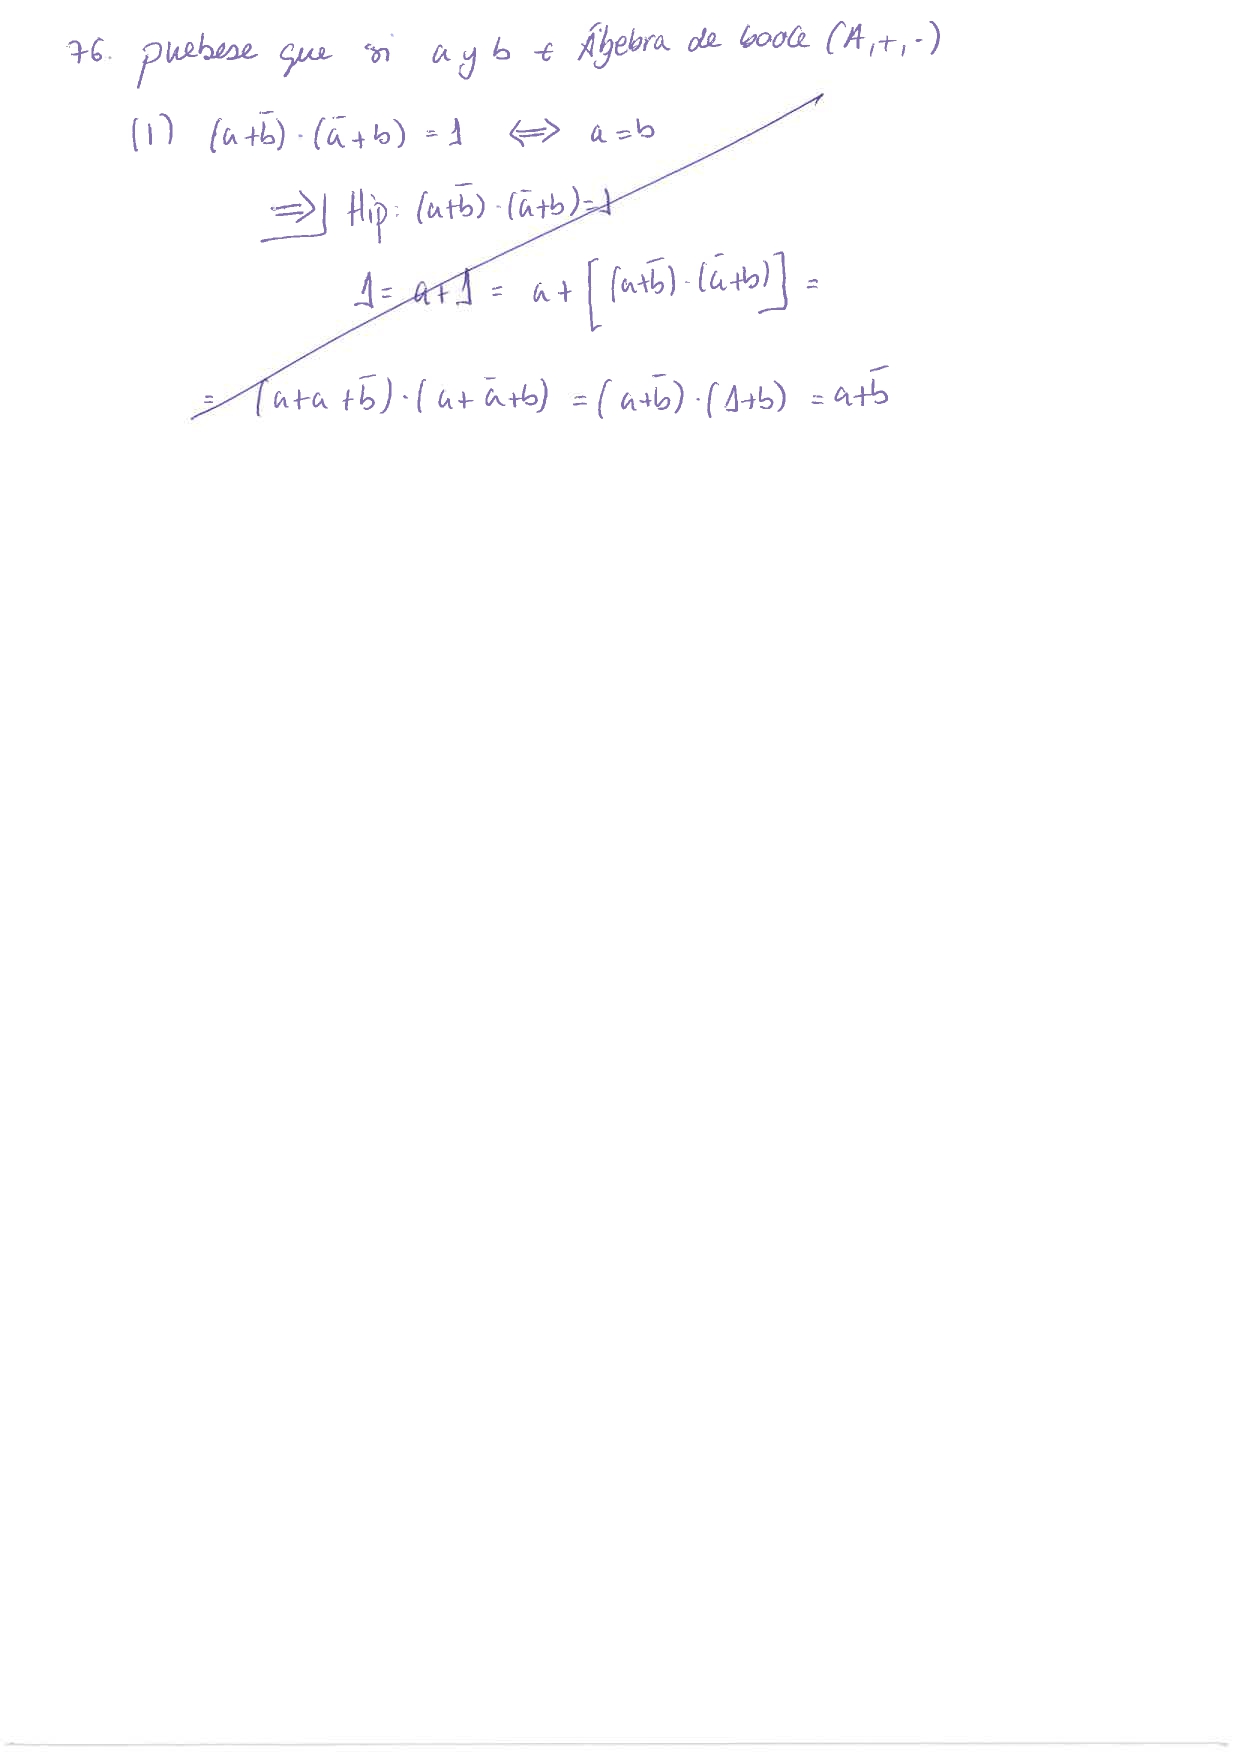 76. pruebese que si a y b ∈ Álgebra de boole (A,+,·)
(1) (a+b̄)·(ā+b) = 1 ⟺ a=b
⇒] Hip: (a+b̄)·(ā+b)=1
1= a+1 = a+[(a+b̄)·(ā+b)] =
= (a+a+b̄)·(a+ā+b) = (a+b̄)·(1+b) = a+b̄